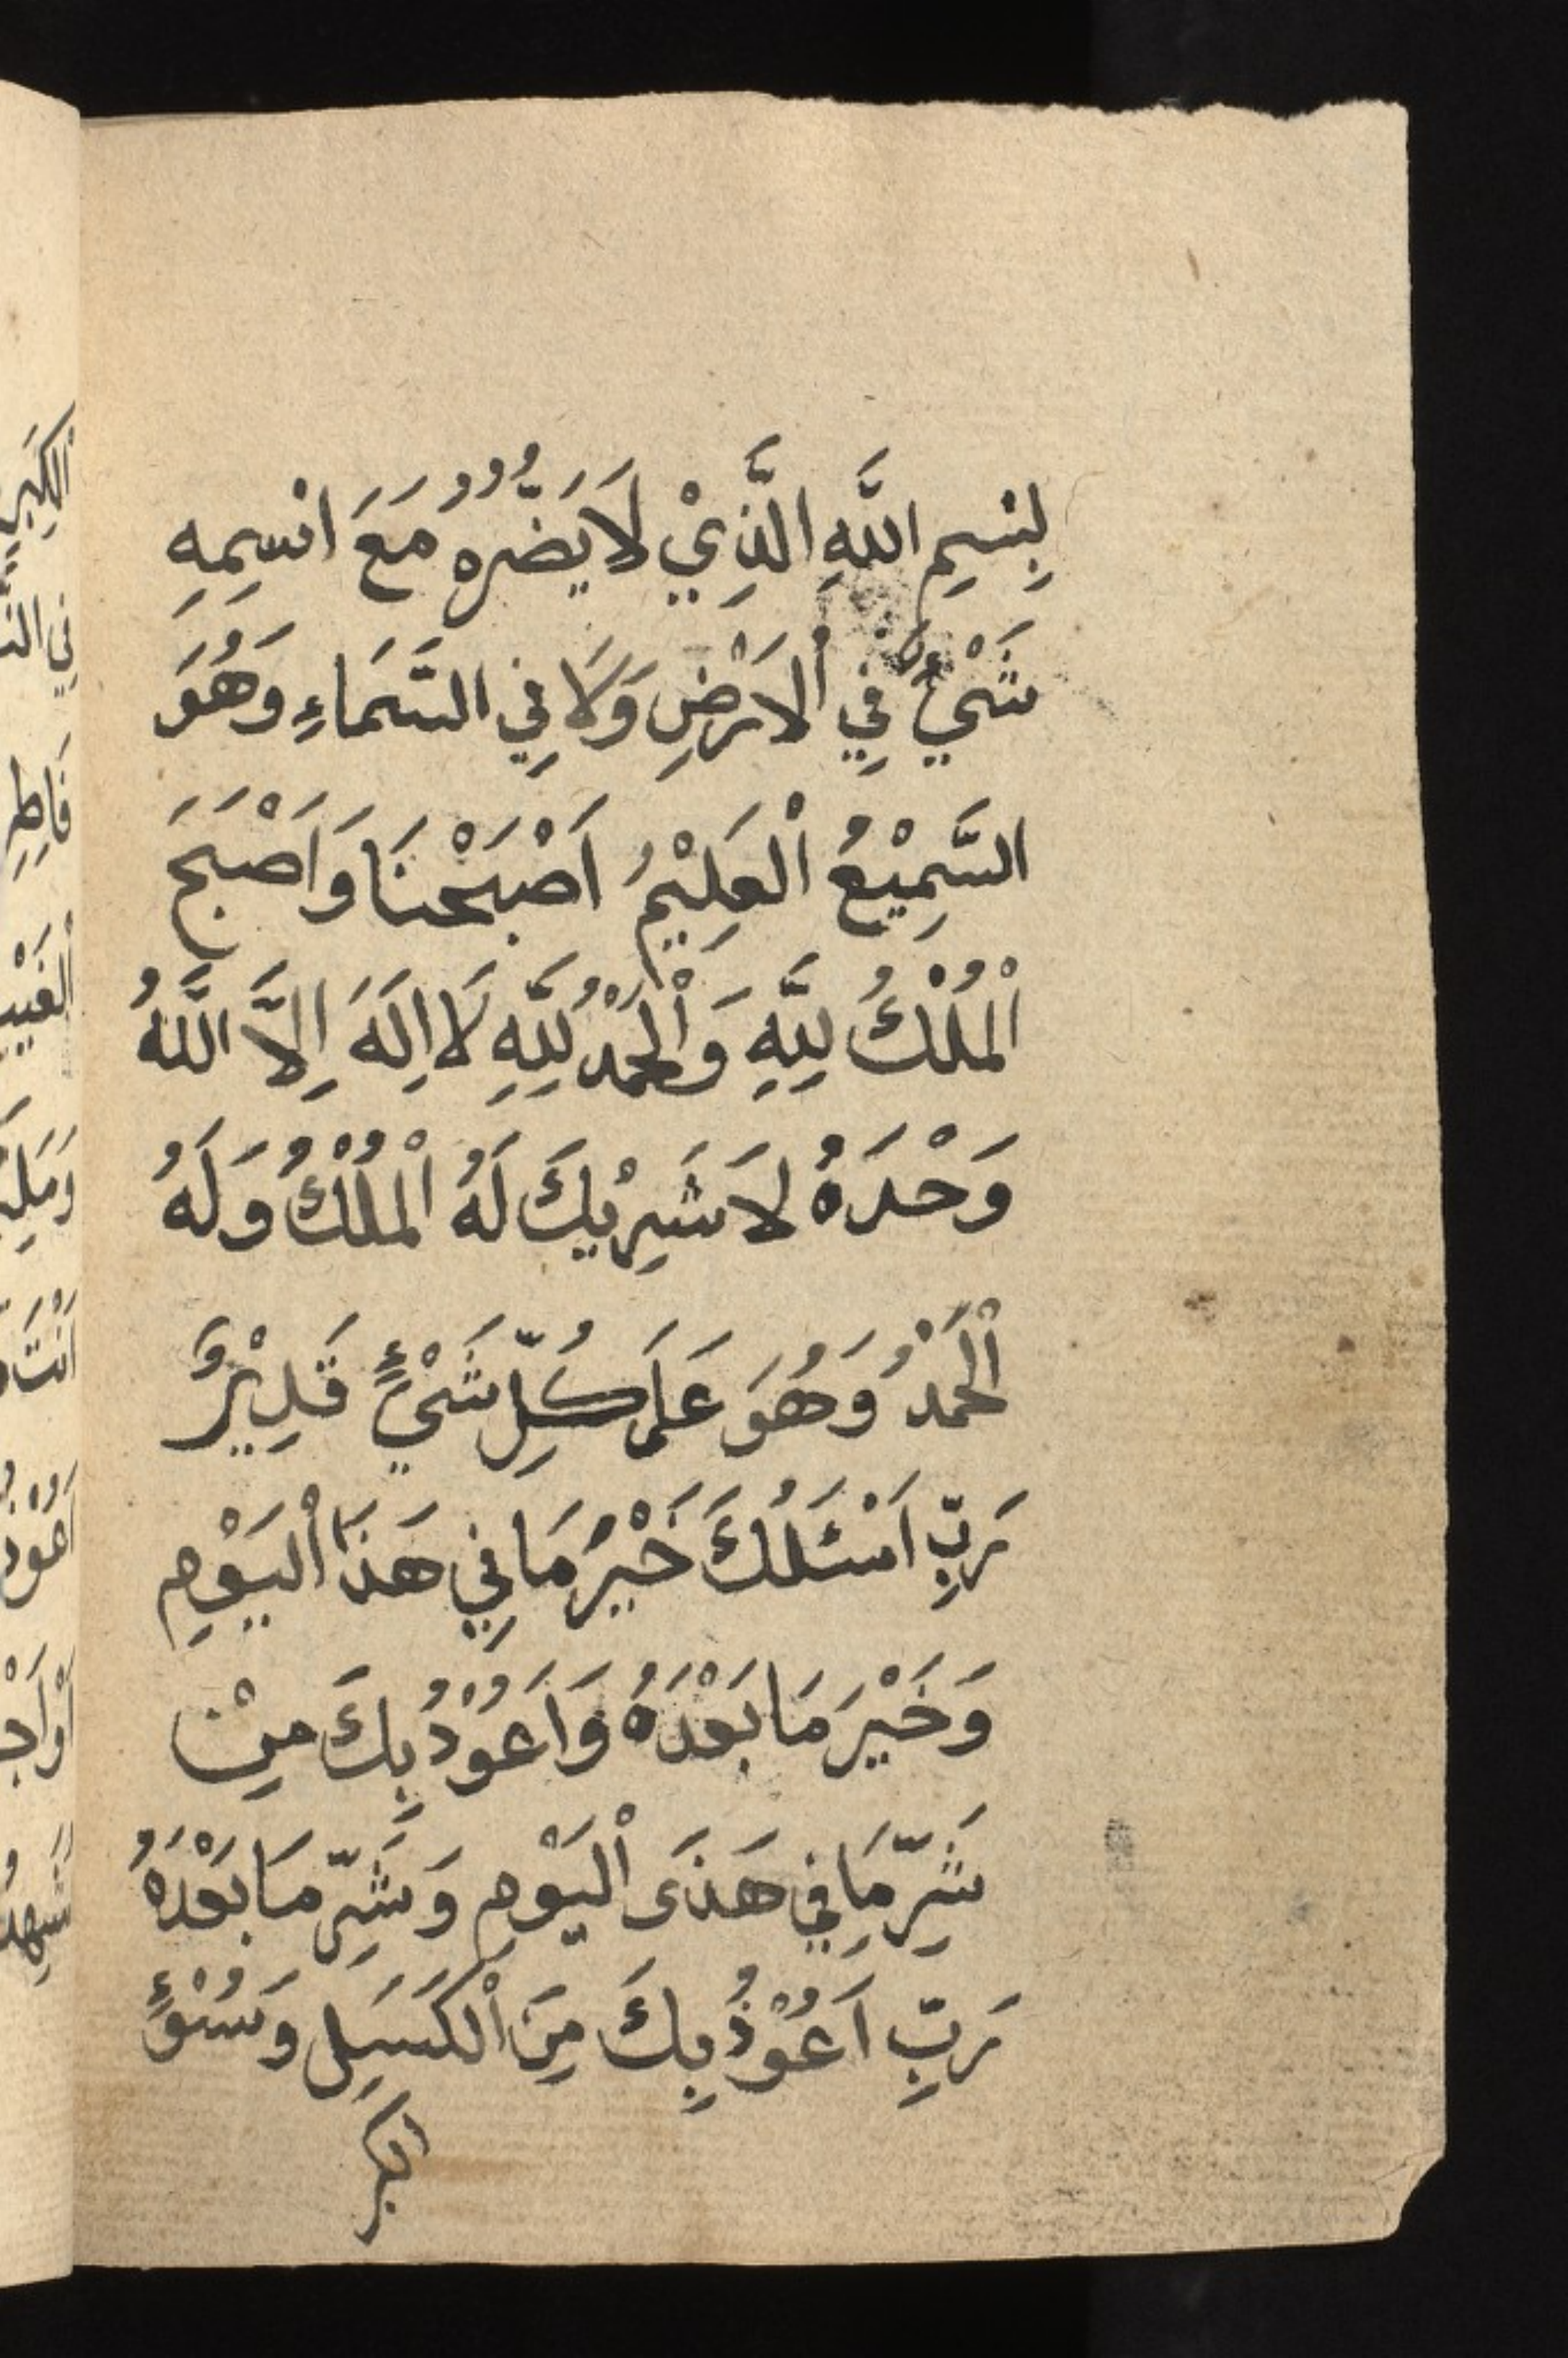 بِسْمِ اللَّهِ الَّذِيْ لَا يَضُرُّهُ مَعَ اسْمِهِ
شَيْءٌ فِي اْلاَرْضِ وَلَا فِي السَّمَاءِ وَهُوَ
السَّمِيْعُ اْلعَلِيْمُ اَصْبَحْنَا وَاَصْبَحَ
اْلمُلْكُ لِلَّهِ وَاْلحَمْدُ لِلَّهِ لَا اِلَهَ اِلَّا اللَّهُ
وَحْدَهُ لاَ شَرِيْكَ لَهُ اْلمُلْكُ وَلَهُ
اْلحَمْدُ وَهُوَ عَلَى كُلِّ شَيْءٍ قَدِيْرٌ
رَبِّ اَسْئَلُكَ خَيْرَ مَا فِي هَذَا اْليَوْمِ
وَخَيْرَ مَا بَعْدَهُ وَاَعُوْذُ بِكَ مِنْ
شَرِّ مَا فِي هَذَى اْليَوْمِ وَشَرِّ مَا بَعْدَهُ
رَبِّ اَعُوْذُ بِكَ مِنَ اْلكَسَلِ وَسُوْءٍ